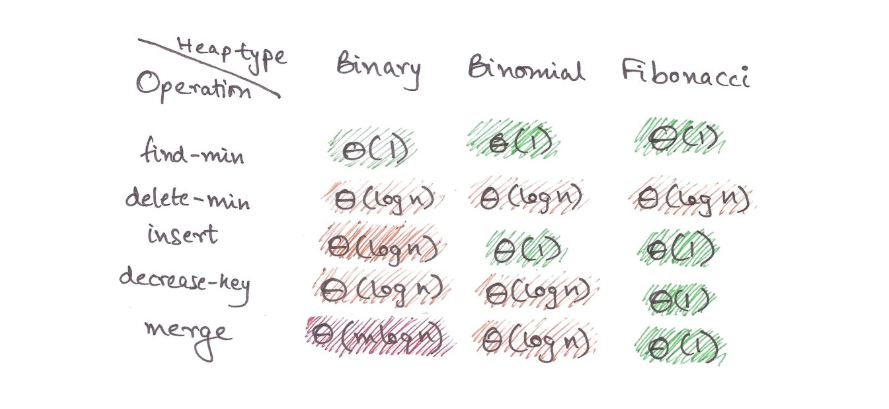 Heap type
Operation Binary Binomial Fibonacci
find-min Θ(1) Θ(1) Θ(1)
delete-min Θ(log n) Θ(log n) Θ(log n)
insert Θ(log n) Θ(1) Θ(1)
decrease-key Θ(log n) Θ(log n) Θ(1)
merge Θ(m log n) Θ(log n) Θ(1)